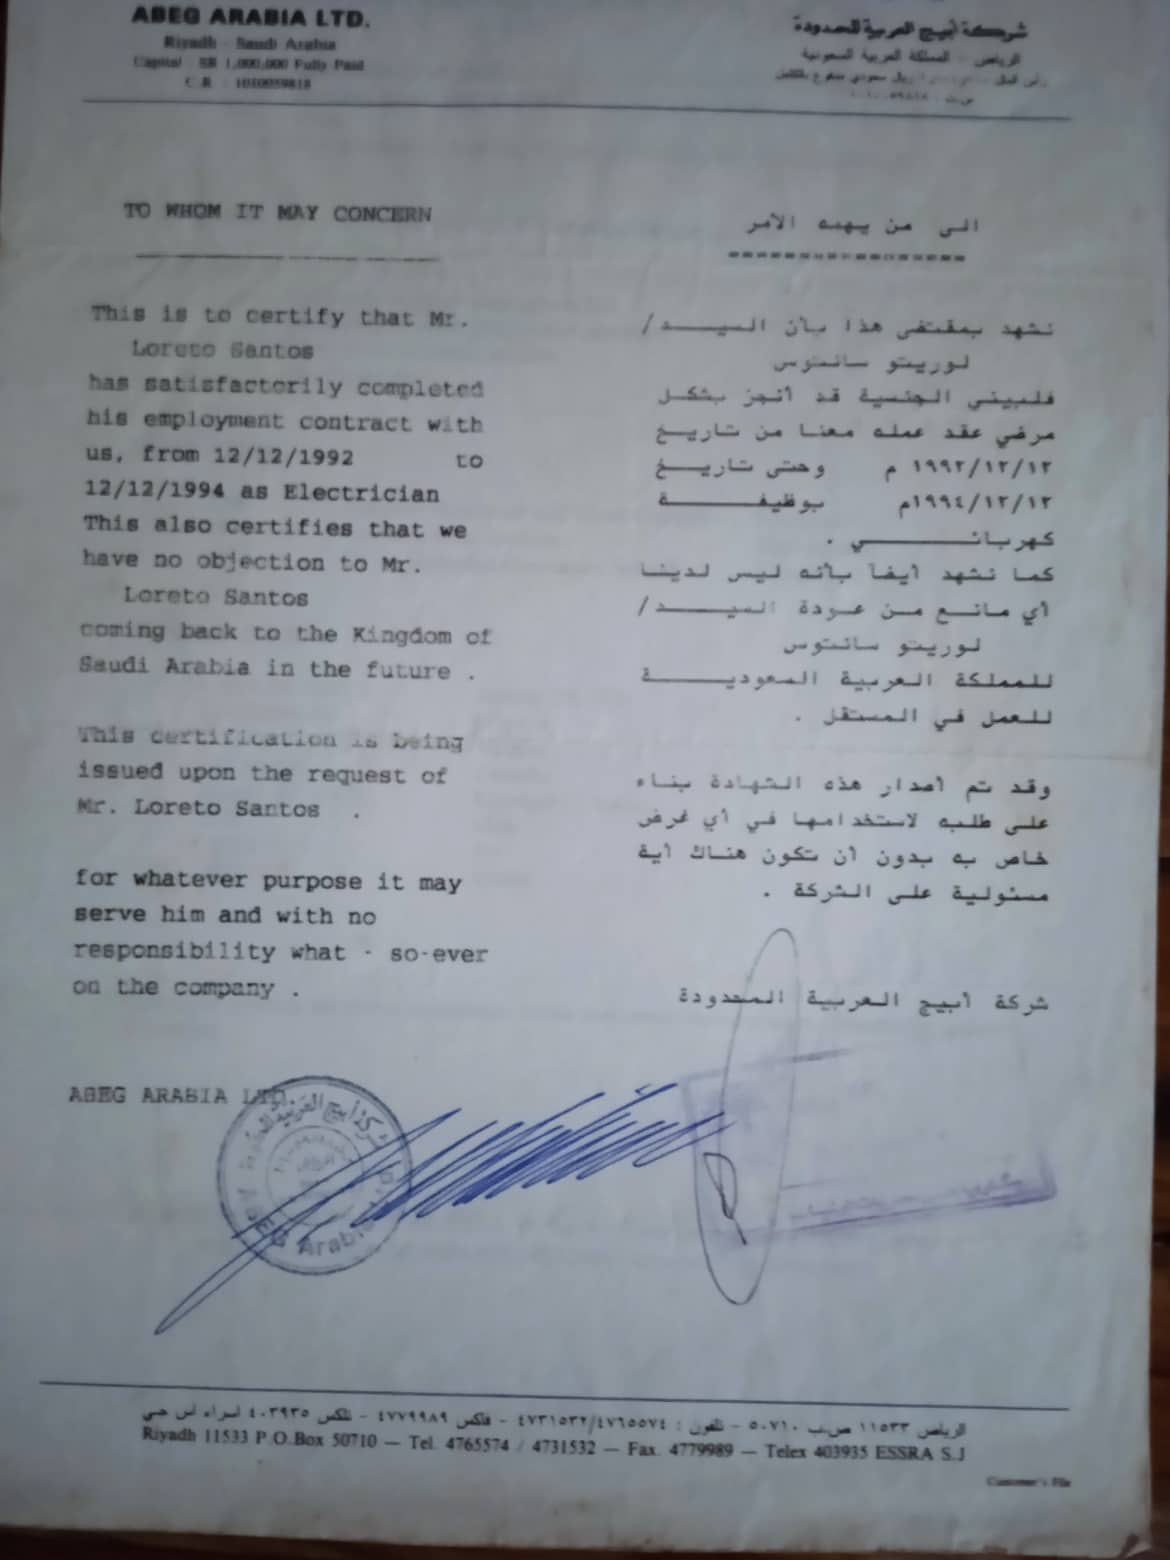 ABEG ARABIA LTD.
Riyadh - Saudi Arabia
Capital : SR 1,000,000 Fully Paid
C.R. : 1010059818
شركة أبيج العربية المحدودة
الرياض - المملكة العربية السعودية
ريال سعودي مدفوع بالكامل
TO WHOM IT MAY CONCERN
This is to certify that Mr.
Loreto Santos
has satisfactorily completed
his employment contract with
us, from 12/12/1992 to
12/12/1994 as Electrician
This also certifies that we
have no objection to Mr.
Loreto Santos
coming back to the Kingdom of
Saudi Arabia in the future .
This certification is being
issued upon the request of
Mr. Loreto Santos .
for whatever purpose it may
serve him and with no
responsibility what - so-ever
on the company .
ABEG ARABIA LTD.
الى من يهمه الأمر
نشهد بمقتضى هذا بأن السيد/
لوريتو سانتوس
فلبيني الجنسية قد أنجز بشكل
مرضي عقد عمله معنا من تاريخ
١٩٩٢/١٢/١٢ م وحتى تاريخ
١٩٩٤/١٢/١٢م بوظيفة
كهربائي .
كما نشهد أيضا بأنه ليس لدينا
أي مانع من عودة السيد/
لوريتو سانتوس
للمملكة العربية السعودية
للعمل في المستقل .
وقد تم أصدار هذه الشهادة بناء
على طلبه لاستخدامها في أي غرض
خاص به بدون أن تكون هناك أية
مسئولية على الشركة .
شركة أبيج العربية المحدودة
شركة أبيج العربية المحدودة
ABEG Arabia Ltd.
الرياض ١١٥٣٣ ص.ب ٥٠٧١٠ - تلفون : ٤٧٦٥٥٧٤/٤٧٣١٥٣٢ - فاكس ٤٧٧٩٩٨٩ - تلكس ٤٠٣٩٣٥ اسراء اس جي
Riyadh 11533 P.O.Box 50710 — Tel. 4765574 / 4731532 — Fax. 4779989 — Telex 403935 ESSRA S.J
Customer's File